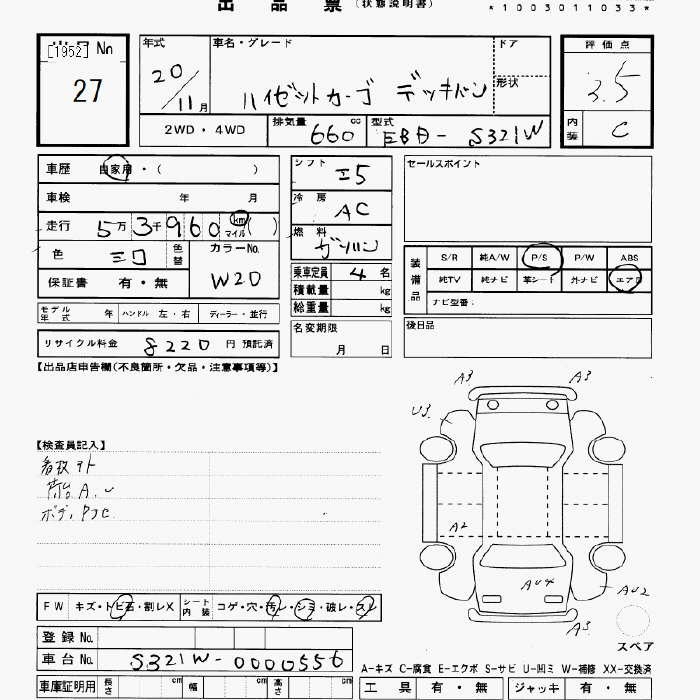 出品票 (状態説明書)
*1003011033*
[1952] No
27
年式
20/11月
車名・グレード
ハイゼットカーゴ デッキバン
ドア
形状
2WD・4WD
排気量 660 cc
型式 EBD-S321W
評価点
3.5
内装 C
車歴 自家用・( )
車検 年 月
走行 5万3千960 km マイル ( )
色 シロ 色替
カラーNo. W20
保証書 有・無
モデル年式 年 ハンドル 左・右 ディーラー・並行
リサイクル料金 8220 円 預託済
シフト I5
冷房 AC
燃料 ガソリン
乗車定員 4 名
積載量 kg
総重量 kg
名変期限 月 日
セールスポイント
装備品
S/R 純A/W P/S P/W ABS
純TV 純ナビ 革シート 外ナビ エアB
ナビ型番:
後日品
【出品店申告欄(不良箇所・欠品・注意事項等)】
【検査員記入】
看板アト
荷台A.U
ボディPコC
A3 A3
U3
A2
AU4
AU2
A3
スペア
FW キズ・トビ石・割レX
シート内装 コゲ・穴・汚レ・シミ・破レ・スレ
登録No.
車台No. S321W-0000556
車庫証明用 長さ cm 幅 cm 高さ cm
A-キズ C-腐食 E-エクボ S-サビ U-凹ミ W-補修 XX-交換済
工具 有・無 ジャッキ 有・無